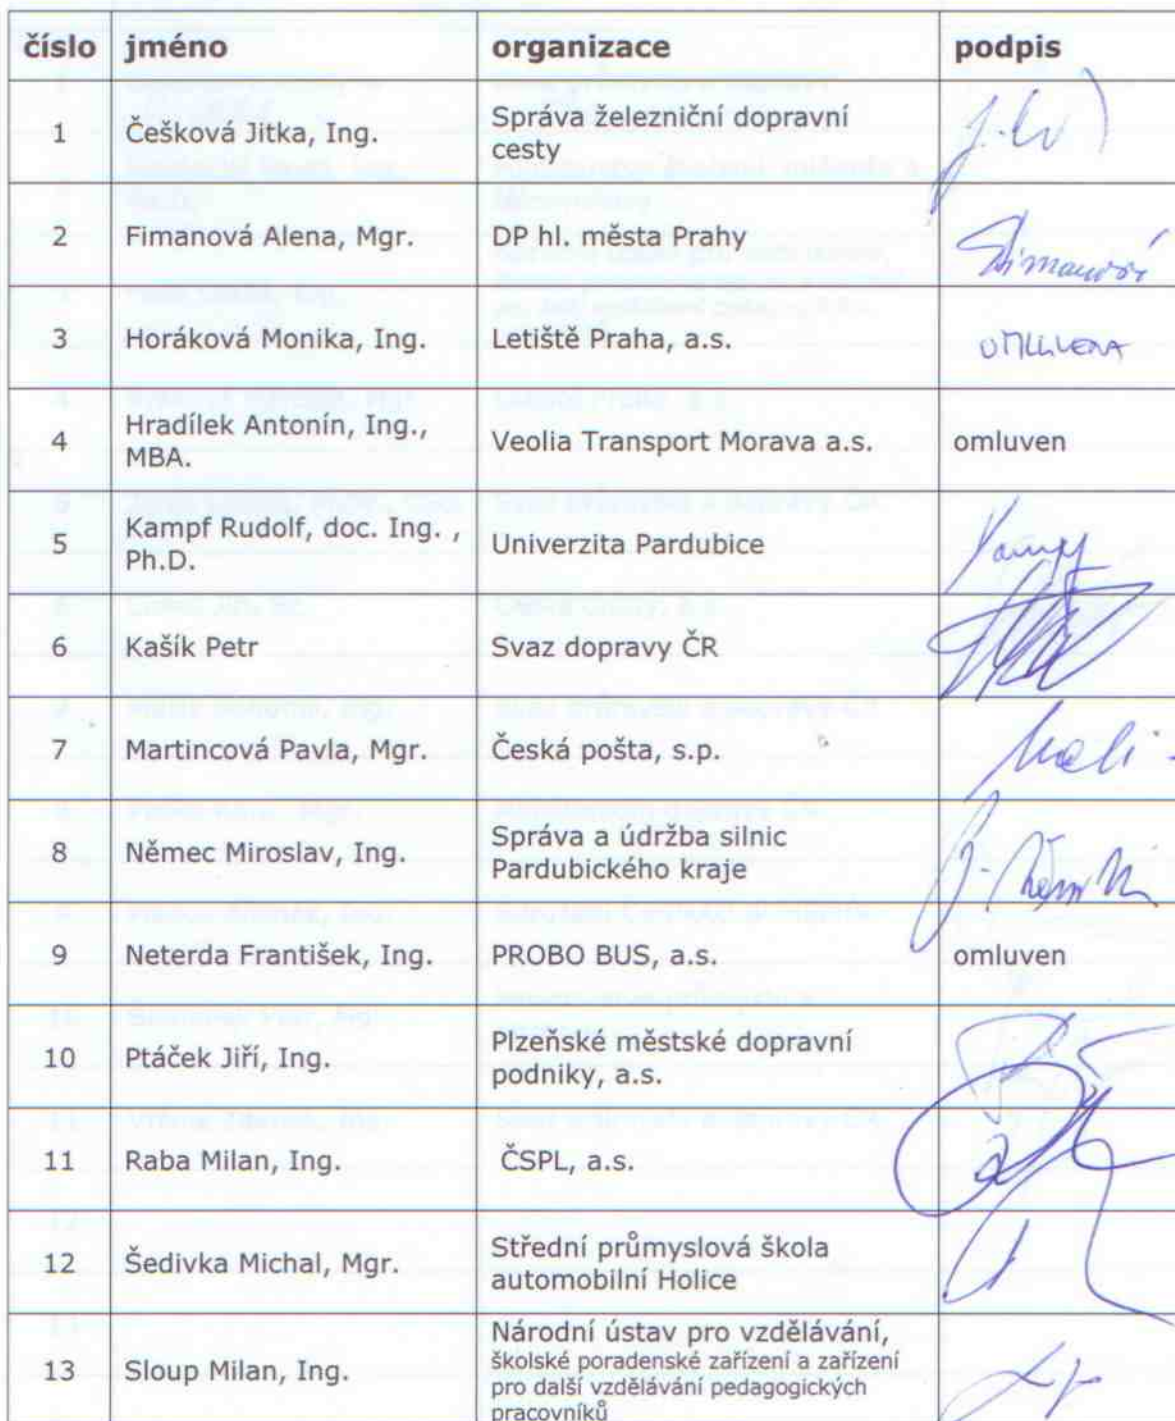 číslo jméno organizace podpis
1 Češková Jitka, Ing. Správa železniční dopravní
cesty
2 Fimanová Alena, Mgr. DP hl. města Prahy Fimanová
3 Horáková Monika, Ing. Letiště Praha, a.s. OMLUVENA
4 Hradílek Antonín, Ing.,
MBA. Veolia Transport Morava a.s. omluven
5 Kampf Rudolf, doc. Ing. ,
Ph.D. Univerzita Pardubice Kampf
6 Kašík Petr Svaz dopravy ČR
7 Martincová Pavla, Mgr. Česká pošta, s.p.
8 Němec Miroslav, Ing. Správa a údržba silnic
Pardubického kraje
9 Neterda František, Ing. PROBO BUS, a.s. omluven
10 Ptáček Jiří, Ing. Plzeňské městské dopravní
podniky, a.s.
11 Raba Milan, Ing. ČSPL, a.s.
12 Šedivka Michal, Mgr. Střední průmyslová škola
automobilní Holice
13 Sloup Milan, Ing. Národní ústav pro vzdělávání,
školské poradenské zařízení a zařízení
pro další vzdělávání pedagogických
pracovníků